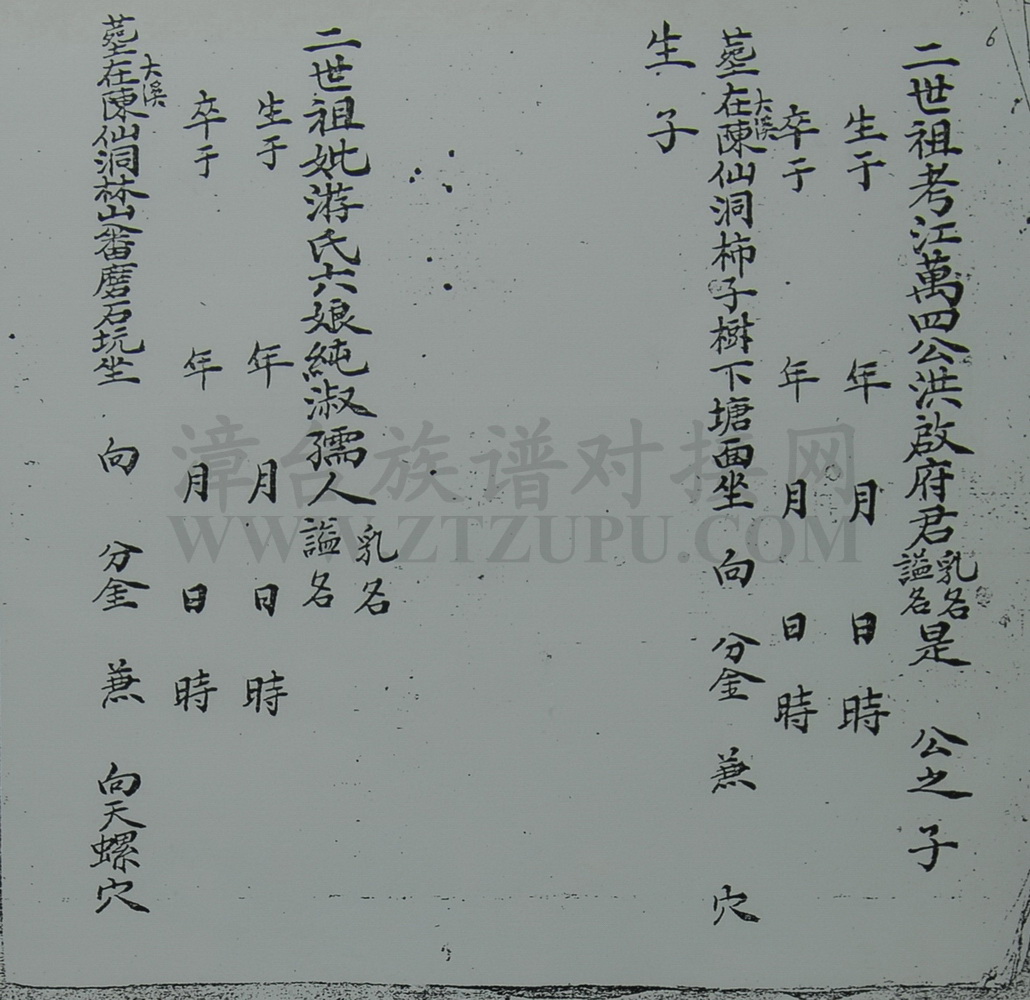 6
二世祖考江萬四公洪啟府君乳名諡名是 公之子
生于 年 月 日 時
卒于 年 月 日 時
塟在大溪陳仙洞柿子樹下塘面坐 向 分金 兼 穴
生子
二世祖妣游氏六娘純淑孺人乳名諡名
生于 年 月 日 時
卒于 年 月 日 時
塟在大溪陳仙洞林山畨磨石坑坐 向 分金 兼 向天螺穴
漳台族谱对接网
WWW.ZTZUPU.COM